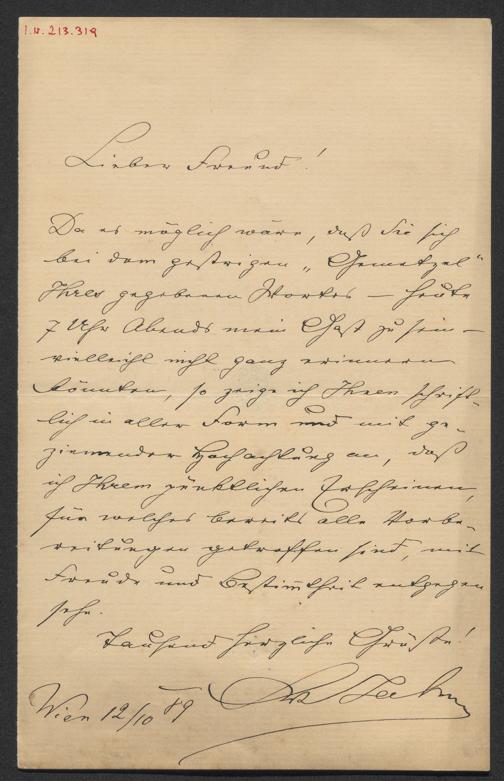 I.N. 213.319
Lieber Freund!
Da es möglich wäre, daß Sie sich
bei dem gestrigen „Gemetzel“
Ihres gegebenen Wortes — heute
7 Uhr Abends mein Gast zu sein —
vielleicht nicht ganz erinnern
könnten, so zeige ich Ihnen schrift-
lich in aller Form und mit ge-
ziemender Hochachtung an, daß
ich Ihrem pünktlichen Erscheinen,
für welches bereits alle Vorbe-
reitungen getroffen sind, mit
Freude und Bestimtheit entgegen
sehe.
Tausend herzliche Grüße!
Wien 12/10 89